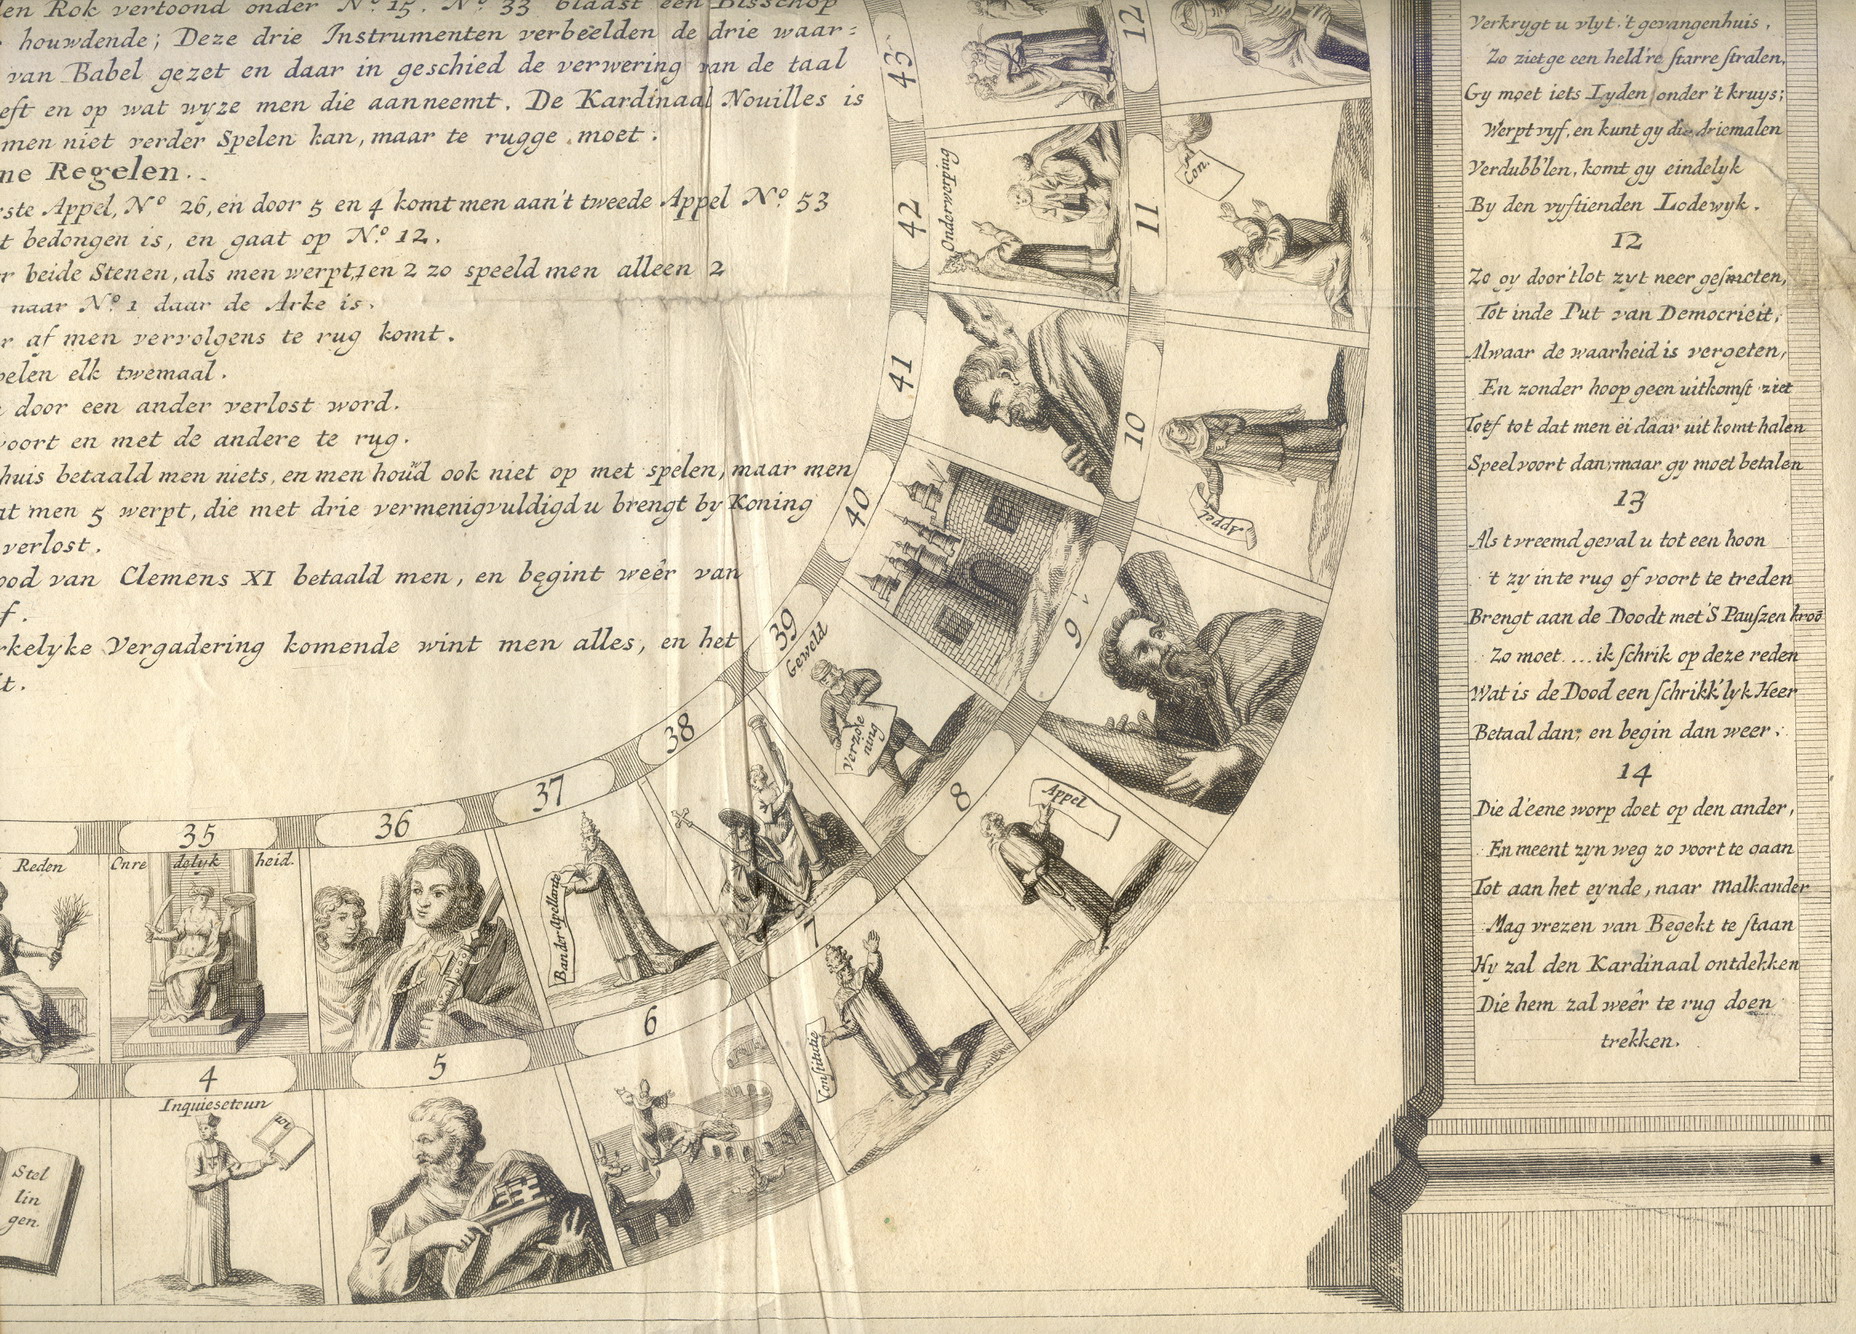 en Rok vertoond onder Nº 15. Nº 33 blaast een Bisschop
houwdende; Deze drie Instrumenten verbeelden de drie waar=
van Babel gezet en daar in geschied de verwering van de taal
eft en op wat wyze men die aanneemt. De Kardinaal Nouilles is
men niet verder Spelen kan, maar te rugge moet.
ne Regelen.
rste Appel, Nº 26, en door 5 en 4 komt men aan't tweede Appel Nº 53
t bedongen is, en gaat op Nº 12.
r beide Stenen, als men werpt, 1 en 2 zo speeld men alleen 2
naar Nº 1 daar de Arke is.
r af men vervolgens te rug komt.
pelen elk twemaal.
door een ander verlost word.
voort en met de andere te rug.
huis betaald men niets, en men houd ook niet op met spelen, maar men
at men 5 werpt, die met drie vermenigvuldigd u brengt by Koning
verlost.
ood van Clemens XI betaald men, en begint weêr van
f.
rkelyke Vergadering komende wint men alles, en het
t.
43
42
Onderwerping
41
40
39
Geweld
Verzoe
ning
38
37
Ban der Apellante
36
35
Onre delyk heid.
Reden
12
11
Con.
10
Appel
9
8
Appel
7
Constitutie
6
5
4
Inquieseteun
Stel
lin
gen.
Verkrygt u vlyt 't gevangenhuis,
Zo ziet ge een held're starre stralen,
Gy moet iets Lyden onder 't kruys;
Werpt vyf, en kunt gy die driemalen
Verdubb'len, komt gy eindelyk
By den vyftienden Lodewyk.
12
Zo gy door 't lot zyt neer gesmeten,
Tot in de Put van Democrieit,
Alwaar de waarheid is vergeten,
En zonder hoop geen uitkomst ziet
tot dat men ei daar uit komt halen
Speel voort dan, maar gy moet betalen
13
Als t vreemd geval u tot een hoon
't zy in te rug of voort te treden
Brengt aan de Doodt met 'S Pauszen kroō
Zo moet ... ik schrik op deze reden
Wat is de Dood een schrikk'lyk Heer
Betaal dan; en begin dan weer.
14
Die d'eene worp doet op den ander,
En meent zyn weg zo voort te gaan
Tot aan het eynde, naar malkander
Mag vrezen van Begekt te staan
Hy zal den Kardinaal ontdekken
Die hem zal weêr te rug doen
trekken.